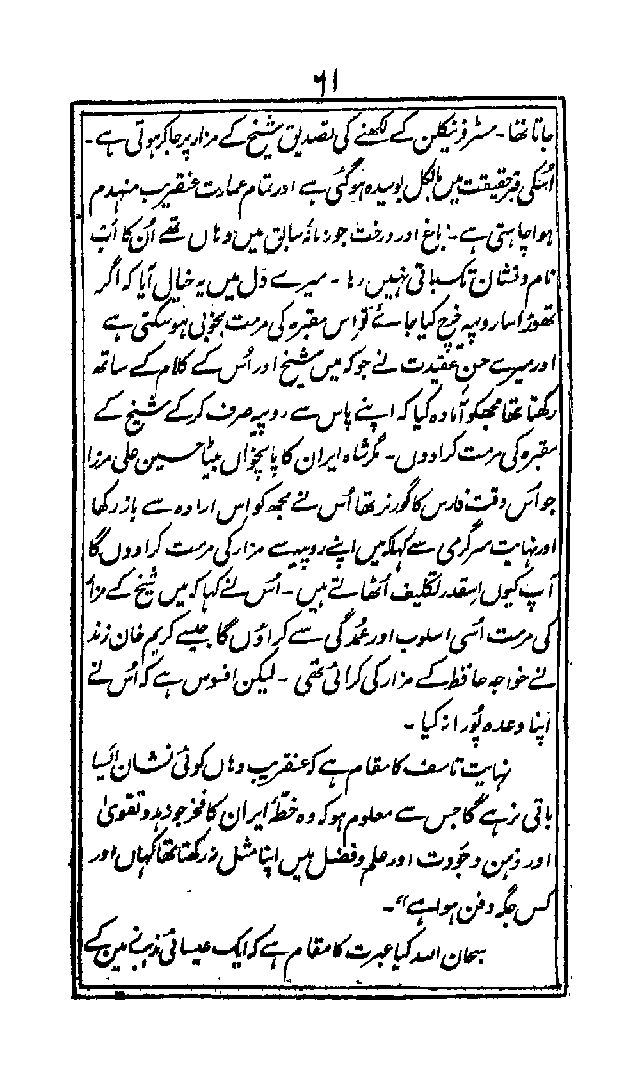 ۶۱
جاتا تھا - مسٹر فرنیکلن کے لکھنے کی تصدیق شیخ کے مزار پر جاکر ہوتی ہے -
اُسکی قبر حقیقت میں بالکل بوسیدہ ہوگئی ہے اور تمام عمارت عنقریب منہدم
ہوا چاہتی ہے - باغ اور درخت جو زمانۂ سابق میں وہاں تھے اُن کا اب
نام و نشان تک باقی نہیں رہا - میرے دل میں یہ خیال آیا کہ اگر
تھوڑا سا روپیہ خرچ کیا جائے تو اِس مقبرہ کی مرمت بخوبی ہوسکتی ہے
اور میرے حسن عقیدت نے جو کہ میں شیخ اور اُس کے کلام کے ساتھ
رکھتا تھا مجھکو آمادہ کیا کہ اپنے پاس سے روپیہ صرف کرکے شیخ کے
مقبرہ کی مرمت کرادوں - مگر شاہ ایران کا پانچواں بیٹا حسین علی مرزا
جو اُس وقت فارس کا گورنر تھا اُس نے مجھ کو اِس ارادہ سے باز رکھا
اور نہایت سرگرمی سے کہا کہ میں اپنے روپیہ سے مزار کی مرمت کرادوں گا
آپ کیوں اِسقدر تکلیف اُٹھاتے ہیں - اُس نے کہا کہ میں شیخ کے مزار
کی مرمت اُسی اسلوب اور عمدگی سے کراؤں گا جیسے کریم خان زند
نے خواجہ حافظ کے مزار کی کرائی تھی - لیکن افسوس ہے کہ اُس نے
اپنا وعدہ پُورا نہ کیا -
نہایت تاسف کا مقام ہے کہ عنقریب وہاں کوئی نشان ایسا
باقی نرہے گا جس سے معلوم ہو کہ وہ خطۂ ایران کا فخر جو زہد و تقویٰ
اور ذہن و جودت اور علم و فضل میں اپنا مثل نہ رکھتا تھا کہاں اور
کس جگہ دفن ہوا ہے" -
سبحان اللہ کیا عبرت کا مقام ہے کہ ایک عیسائی مذہب مین کے